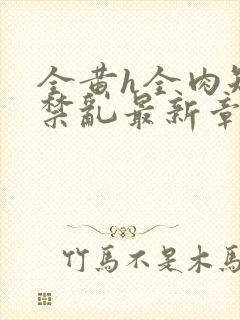 全黄h全肉短
禁亂最新章
竹馬不是木馬